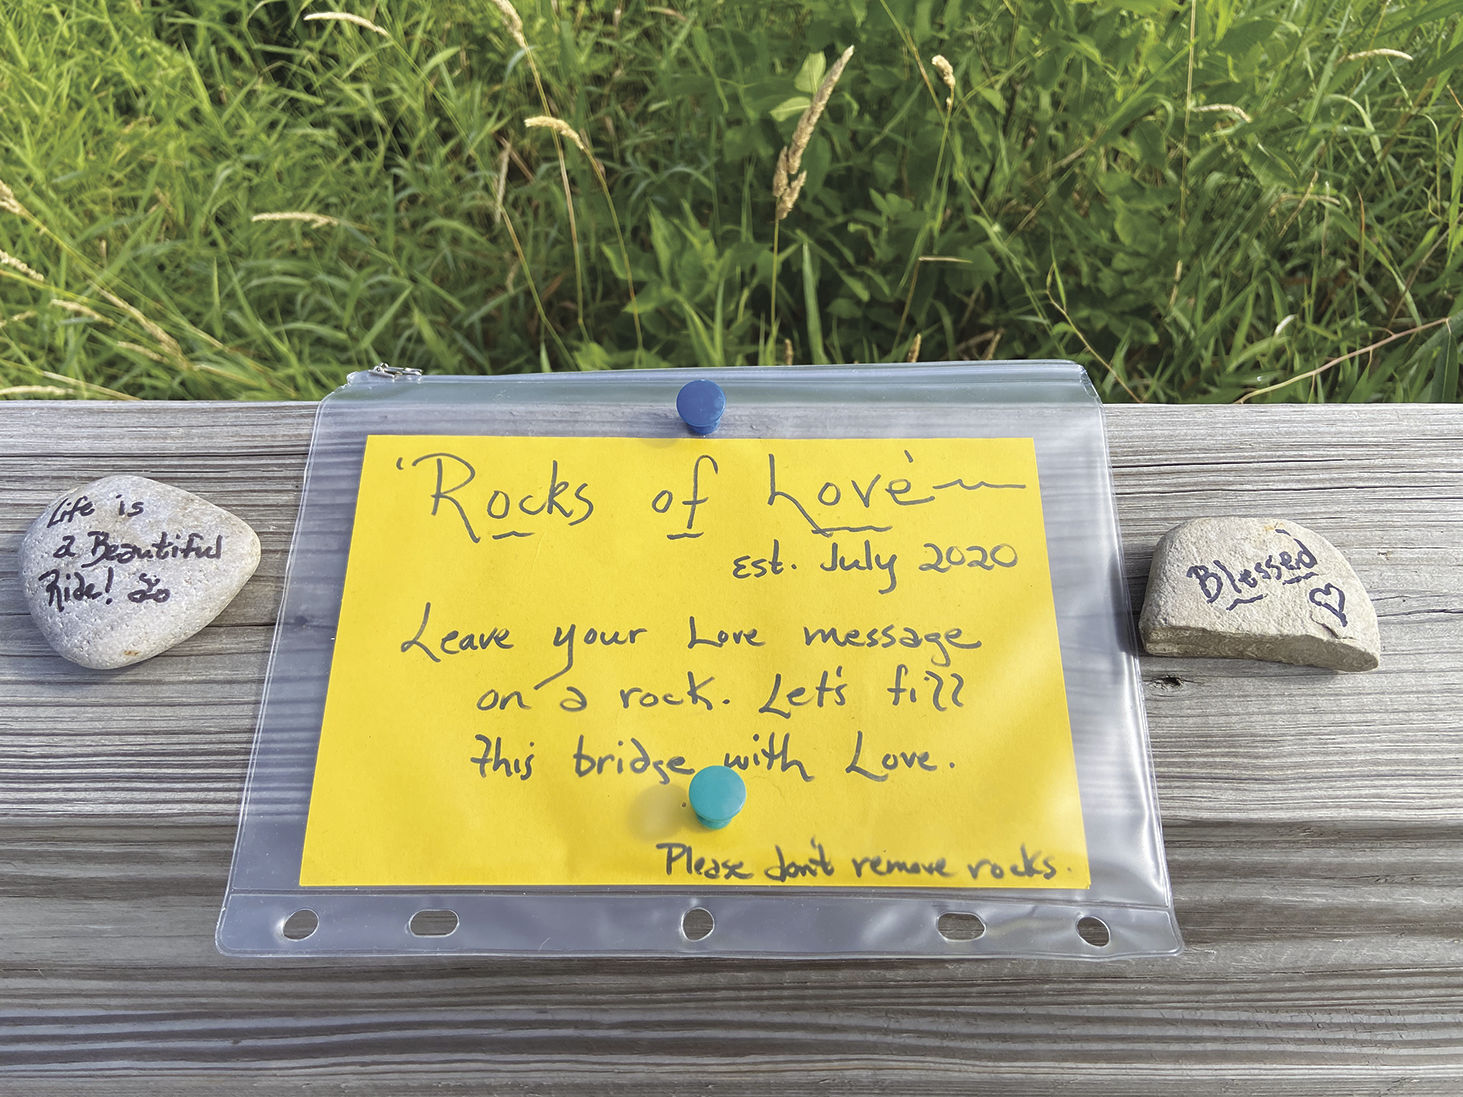 'Rocks of Love'
Est. July 2020
Leave your Love message
on a rock. Let's fill
this bridge with Love.
Please don't remove rocks.
Life is
a Beautiful
Ride!
Blessed